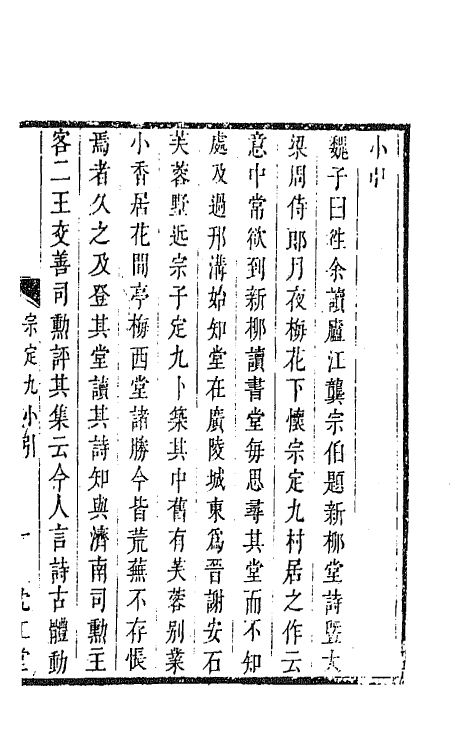 小引
魏子曰往余讀廬江龔宗伯題新柳堂詩暨大
梁周侍郎月夜梅花下懷宗定九村居之作云
意中常欲到新柳讀書堂每思尋其堂而不知
處及過邗溝始知堂在廣陵城東爲晉謝安石
芙蓉墅近宗子定九卜築其中舊有芙蓉别業
小香居花間亭梅西堂諸勝今皆荒蕪不存悵
焉者久之及登其堂讀其詩知與濟南司勳王
客二王交善司勳評其集云今人言詩古體動
宗定九小引
一
枕江堂